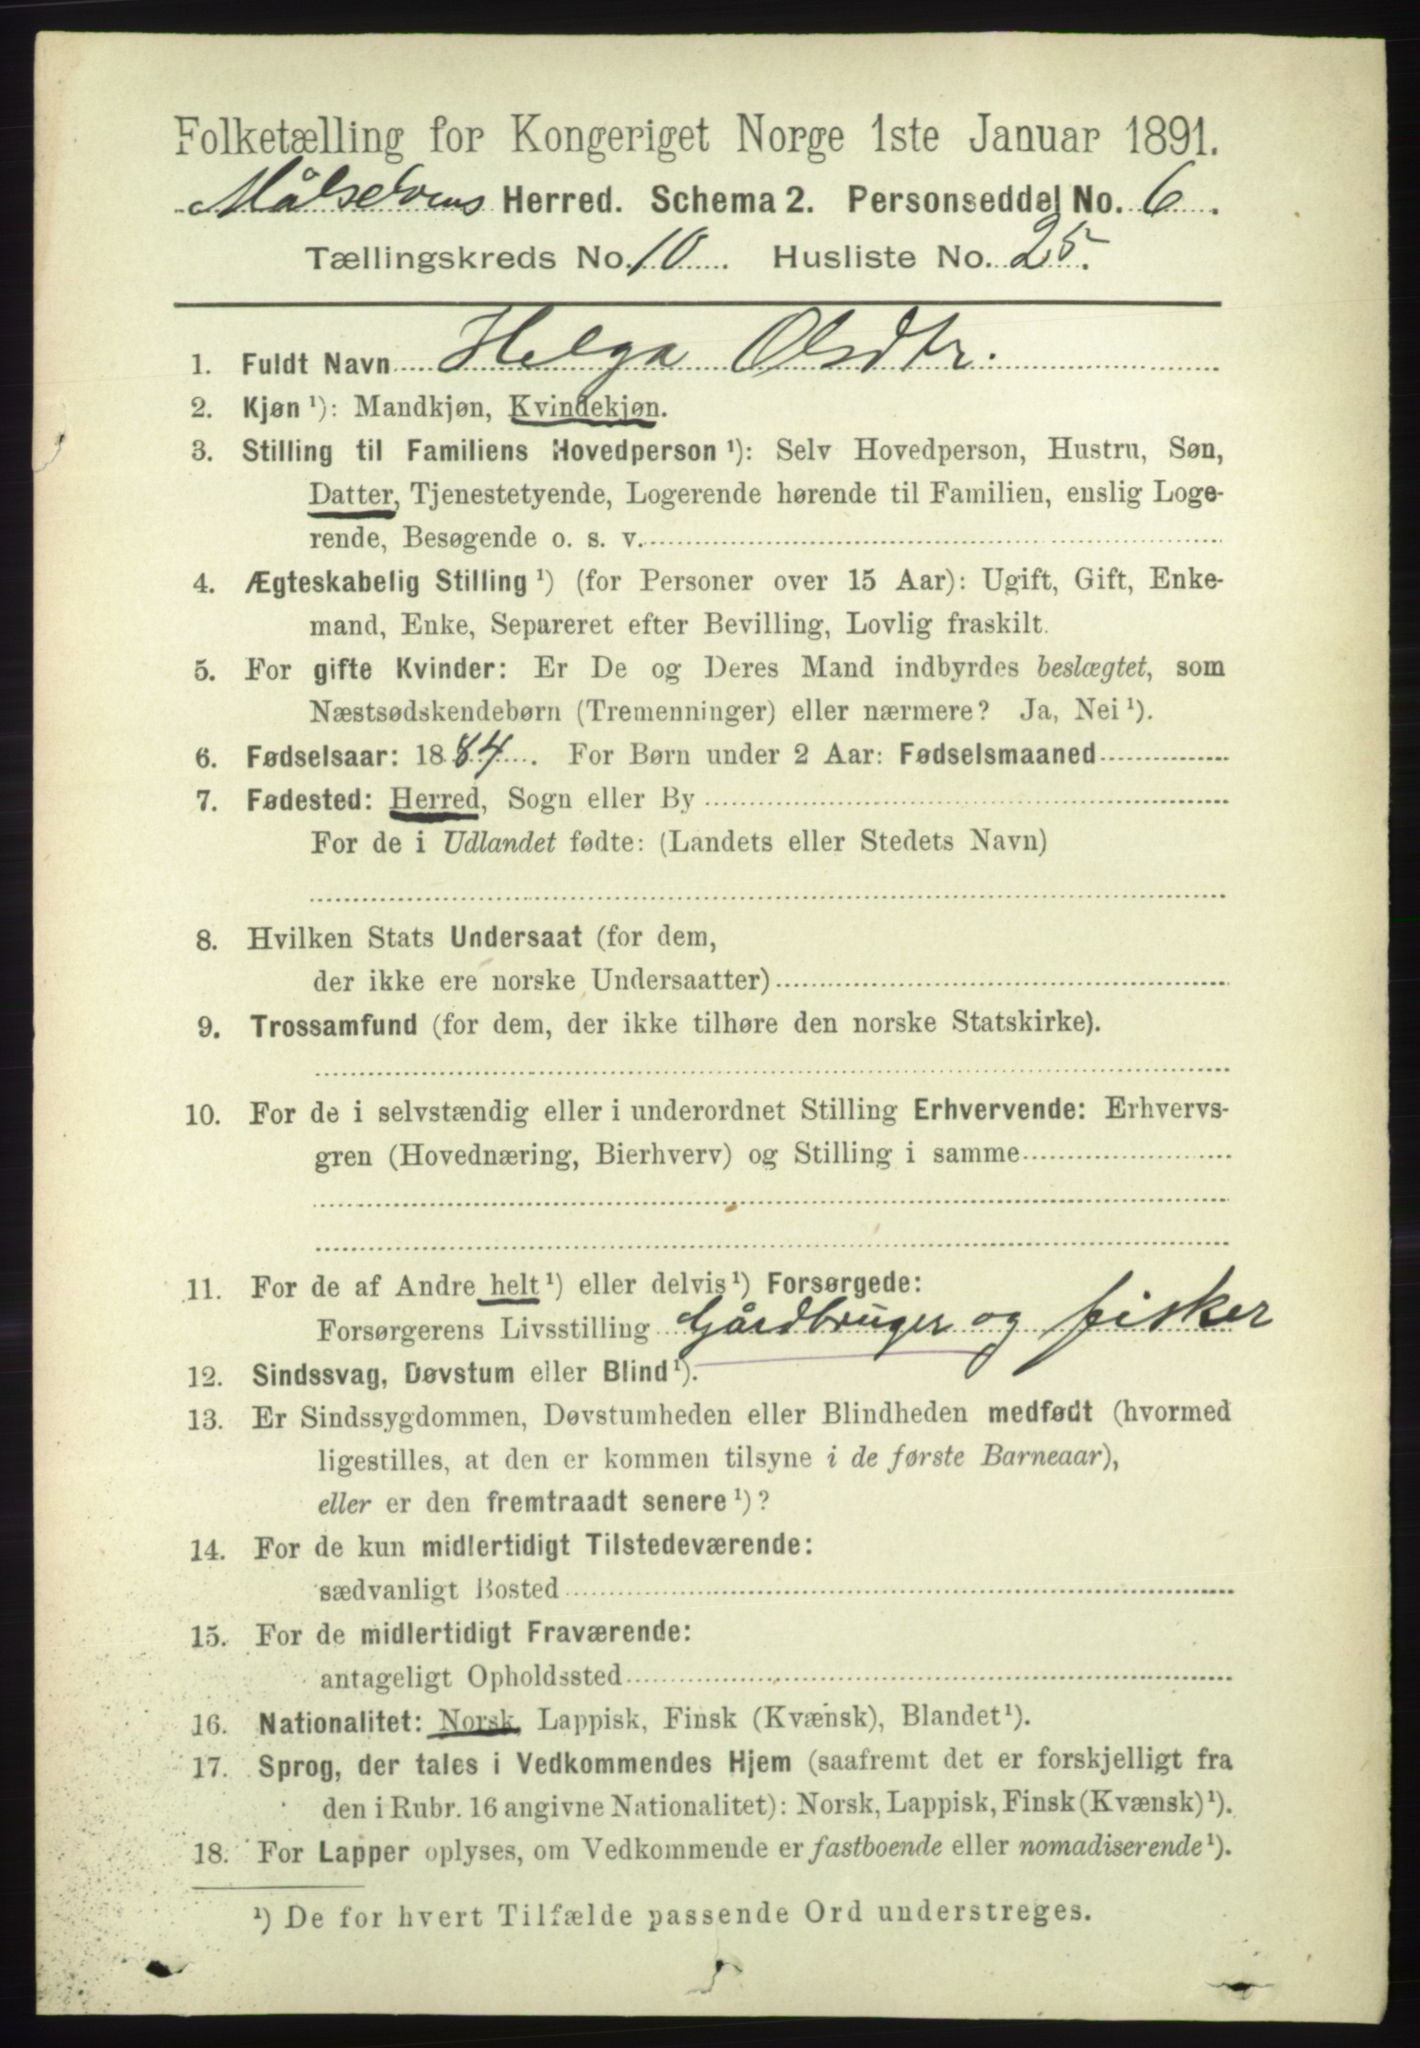 Folketælling for Kongeriget Norge 1ste Januar 1891.
Målselvens Herred. Schema 2. Personseddel No. 6.
Tællingskreds No. 10. Husliste No. 25.
1. Fuldt Navn Helga Olsdtr.
2. Kjøn ¹): Mandkjøn, Kvindekjøn.
3. Stilling til Familiens Hovedperson ¹): Selv Hovedperson, Hustru, Søn,
Datter, Tjenestetyende, Logerende hørende til Familien, enslig Loge-
rende, Besøgende o. s. v.
4. Ægteskabelig Stilling ¹) (for Personer over 15 Aar): Ugift, Gift, Enke-
mand, Enke, Separeret efter Bevilling, Lovlig fraskilt.
5. For gifte Kvinder: Er De og Deres Mand indbyrdes beslægtet, som
Næstsødskendebørn (Tremenninger) eller nærmere? Ja, Nei ¹).
6. Fødselsaar: 1884. For Børn under 2 Aar: Fødselsmaaned
7. Fødested: Herred, Sogn eller By
For de i Udlandet fødte: (Landets eller Stedets Navn)
8. Hvilken Stats Undersaat (for dem,
der ikke ere norske Undersaatter)
9. Trossamfund (for dem, der ikke tilhøre den norske Statskirke).
10. For de i selvstændig eller i underordnet Stilling Erhvervende: Erhvervs-
gren (Hovednæring, Bierhverv) og Stilling i samme
11. For de af Andre helt ¹) eller delvis ¹) Forsørgede:
Forsørgerens Livsstilling Gårdbruger og fisker
12. Sindssvag, Døvstum eller Blind ¹).
13. Er Sindssygdommen, Døvstumheden eller Blindheden medfødt (hvormed
ligestilles, at den er kommen tilsyne i de første Barneaar),
eller er den fremtraadt senere ¹)?
14. For de kun midlertidigt Tilstedeværende:
sædvanligt Bosted
15. For de midlertidigt Fraværende:
antageligt Opholdssted
16. Nationalitet: Norsk, Lappisk, Finsk (Kvænsk), Blandet ¹).
17. Sprog, der tales i Vedkommendes Hjem (saafremt det er forskjelligt fra
den i Rubr. 16 angivne Nationalitet): Norsk, Lappisk, Finsk (Kvænsk) ¹).
18. For Lapper oplyses, om Vedkommende er fastboende eller nomadiserende ¹).
¹) De for hvert Tilfælde passende Ord understreges.